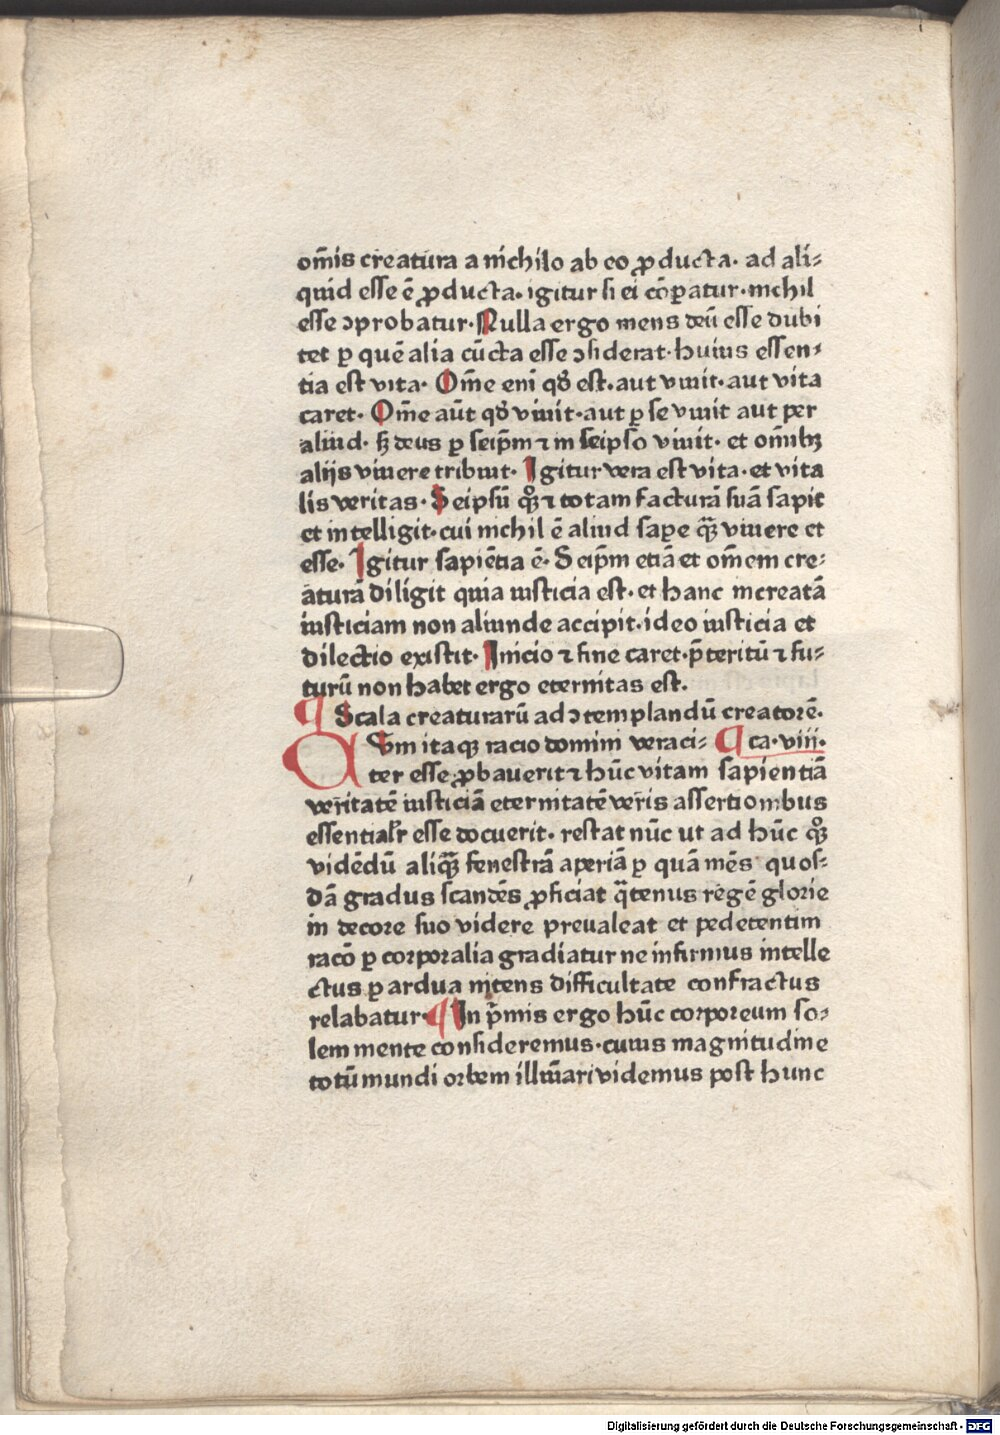 om̄is creatura a nichilo ab eo ꝓducta. ad ali⸗
quid esse ē ꝓducta. igitur si ei cōꝑatur. nichil
esse ꝯprobatur. Nulla ergo mens deū esse dubi
tet ꝑ quē alia cūcta esse ꝯsiderat. huius essen⸗
tia est vita. Om̄e eni qđ est. aut viuit. aut vita
caret. Om̄e aūt qđ viuit. aut ꝑ se viuit aut per
aliud. sꝫ deus ꝑ seip̄m ⁊ in seipso viuit. et om̄ibꝫ
alijs viuere tribuit. Igitur vera est vita. et vita
lis veritas. Seipsū qͦꝫ ⁊ totam facturā suā sapit
et intelligit. cui nichil ē aliud saꝑe qᷓꝫ viuere et
esse. Igitur sapiētia ē. Seip̄m etiā et om̄em cre⸗
aturā diligit quia iusticia est. et hanc increatā
iusticiam non aliunde accipit. ideo iusticia et
dilectio existit. Inicio ⁊ fine caret. p̄teritū ⁊ fu⸗
turū non habet ergo eternitas est.
¶ Scala creaturarū ad ꝯtemplandū creatorē.
Qvm itaqꝫ racio domini veraci⸗ ¶ ca. viii.
ter esse ꝓbauerit ⁊ hūc vitam sapientiā
veritatē iusticiā eternitatē veris assertionibus
essentialr̄ esse docuerit. restat nūc ut ad hūc qͦꝫ
vidēdū aliqᷓꝫ fenestrā aperiā ꝑ quā mēs quos⸗
dā gradus scandēs ꝓficiat qᷓtenus regē glorie
in decore suo videre preualeat et pedetentim
racōꝫ ꝑ corporalia gradiatur ne infirmus intelle
ctus ꝑ ardua nitens difficultate confractus
relabatur. ¶ In p̄mis ergo hūc corporeum so⸗
lem mente consideremus. cuius magnitudine
totū mundi orbem illūari videmus post hunc
Digitalisierung gefördert durch die Deutsche Forschungsgemeinschaft - DFG